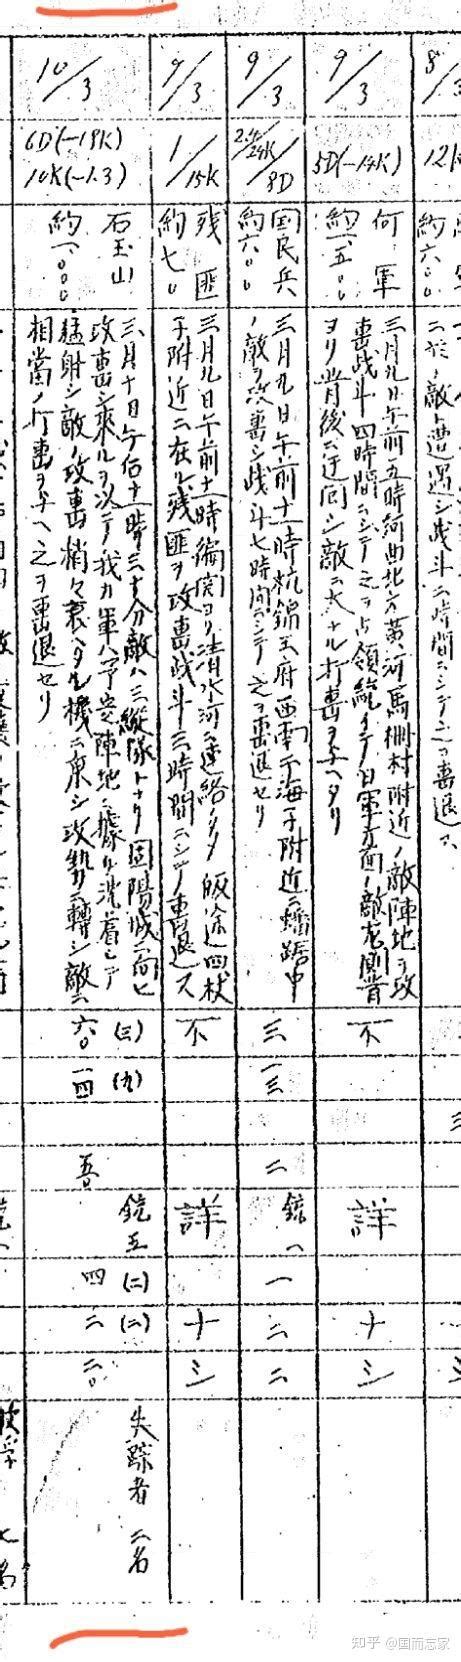 8/3
12K
約六〇〇
ニ於テ敵ト遭遇シ战斗二時間ニシテ之ヲ撃退ス
9/3
5D(-14K)
何軍
約一、五〇〇
三月九日午前五時河曲北方黄河馬柵村附近ノ敵陣地ヲ攻
撃战斗四時間ニシテ之ヲ占領統イテ日軍方面ノ敵左側背
ヨリ背後ニ迂回シ敵ニ大ナル打撃ヲ与ヘタリ
不詳
ナシ
9/3
2.4/24K/8D
国民兵
約六〇〇
三月九日午前十一時杭錦王府西南子海子附近ニ蟠踞中
ノ敵ヲ攻撃シ战斗七時間ニシテ之ヲ撃退セリ
三
一三
二
銃一
一
二
二
9/3
1/15K
残匪
約七〇
三月九日午前十一時偏関ヨリ清水河ニ連絡ノタメ帰途四杖
子附近ニ在ル残匪ヲ攻撃战斗三時間ニシテ撃退ス
不詳
ナシ
10/3
6D(-18K)
10K(-1.3)
石玉山
約一、〇〇〇
三月十日午后十一時三十分敵ハ三縦隊トナリ固陽城ニ向ヒ
攻撃シ来ルヲ以テ我カ軍ハ予定陣地ニ據リ沈着シテ
猛射シ敵ノ攻撃稍々衰ヘタル機ニ乗シ攻勢ニ轉シ敵ニ
相當ノ打撃ヲ与ヘ之ヲ撃退セリ
(三)
六〇
(九)
一四
五〇
銃五
(二)
四
(二)
二
二〇
失踪者 二名
知乎 @国而志家